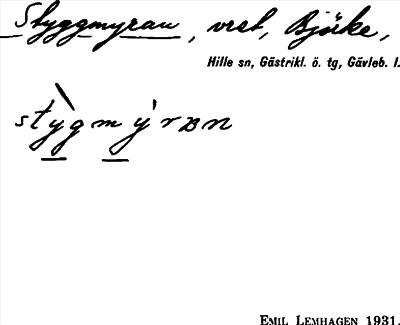 Styggmyran, vret, Björke,
Hille sn, Gästrikl. ö. tg, Gävleb. l.
stỳgmýran
EMIL LEMHAGEN 1931.